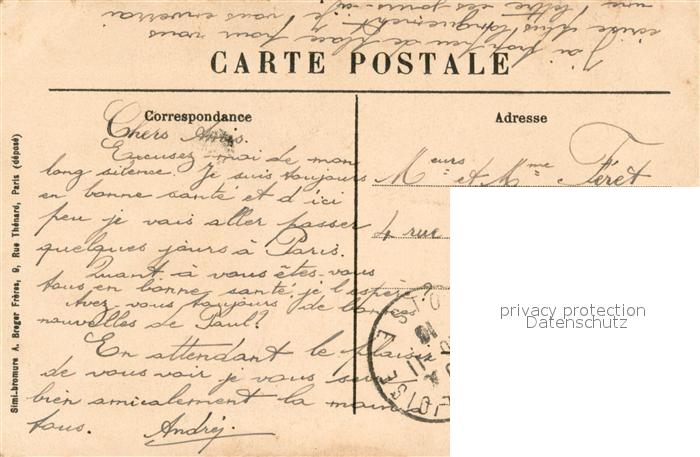 J'ai trop peu de place pour vous
écrire plus longuement je vous enverrai
une lettre ces jours-ci
CARTE POSTALE
Correspondance
Adresse
Chers Amis.
Excusez-moi de mon
long silence. Je suis toujours
en bonne santé et d'ici
peu je vais aller passer
quelques jours à Paris.
Quant a vous êtes-vous
tous en bonne santé, je l'espère?
Avez-vous toujours de bonnes
nouvelles de Paul?
En attendant le plaisir
de vous voir je vous serre
bien amicalement la main à
tous. André
Meurs et Mme Féret
4 rue
Simi-bromure A. Breger Frères, 9, Rue Thénard, Paris (déposé)
privacy protection
Datenschutz